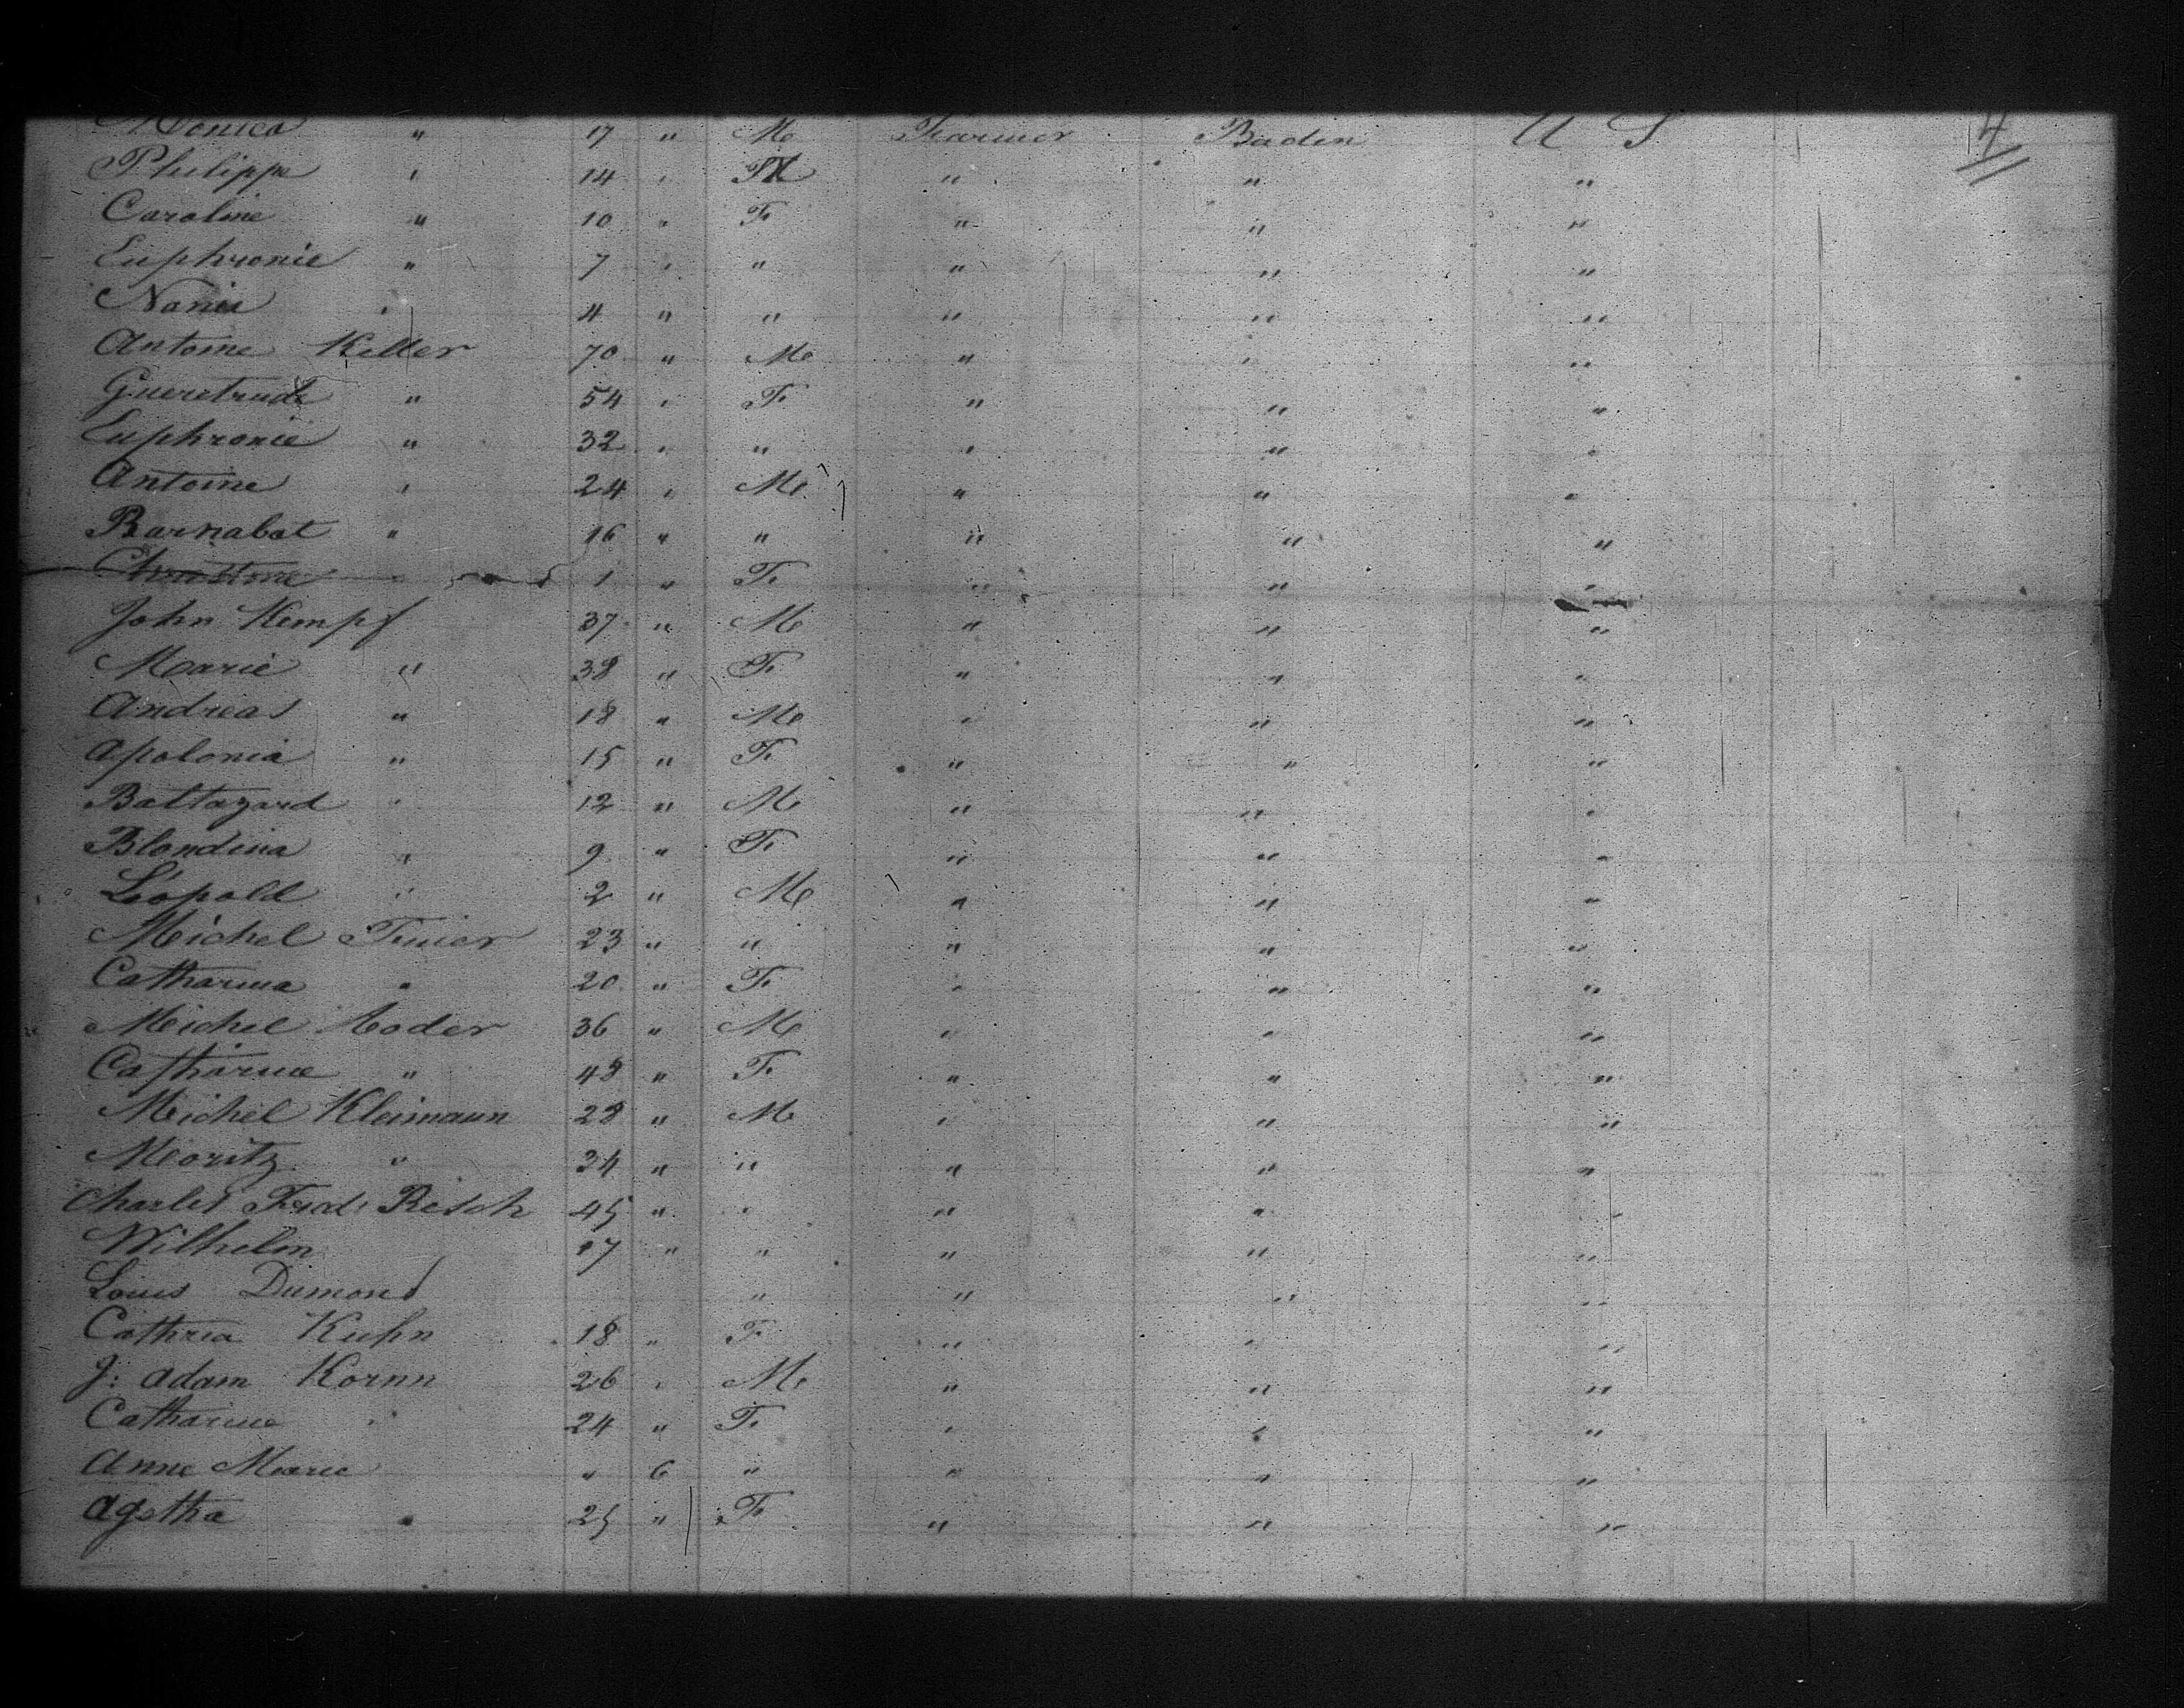 Monica " 17 " M Farmer Baden U S 4
Philippe " 14 " M " " "
Caroline " 10 " F " " "
Euphronie " 7 " " " " "
" 4 " " " " "
Antoine Keller 70 " M " " "
Gueretrude " 54 " F " " "
Euphronie " 32 " " " " "
Antoine " 24 " M " " "
Barnabat " 16 " " " " "
" 1 " F " " "
John Kempf 37 " M " " "
Marie " 38 " F " " "
Andreas " 18 " M " " "
Apolonia " 15 " F " " "
Baltazard " 12 " M " " "
Blondina " 9 " F " " "
Léopold " 2 " M " " "
Michel 23 " " " " "
Catharina " 20 " F " " "
Michel 36 " M " " "
Catharine " 48 " F " " "
Michel Kleimann 28 " M " " "
Moritz " 34 " " " " "
Charles Fred: Resch 45 " " " " "
Wilhelm 17 " " " " "
Louis Dumond " " " "
Cathrea Kuhn 18 " F " " "
J: Adam Kornn 26 " M " " "
Catharine " 24 " F " " "
Anne Marie " 6 " " " "
Agatha " 25 " F " " "